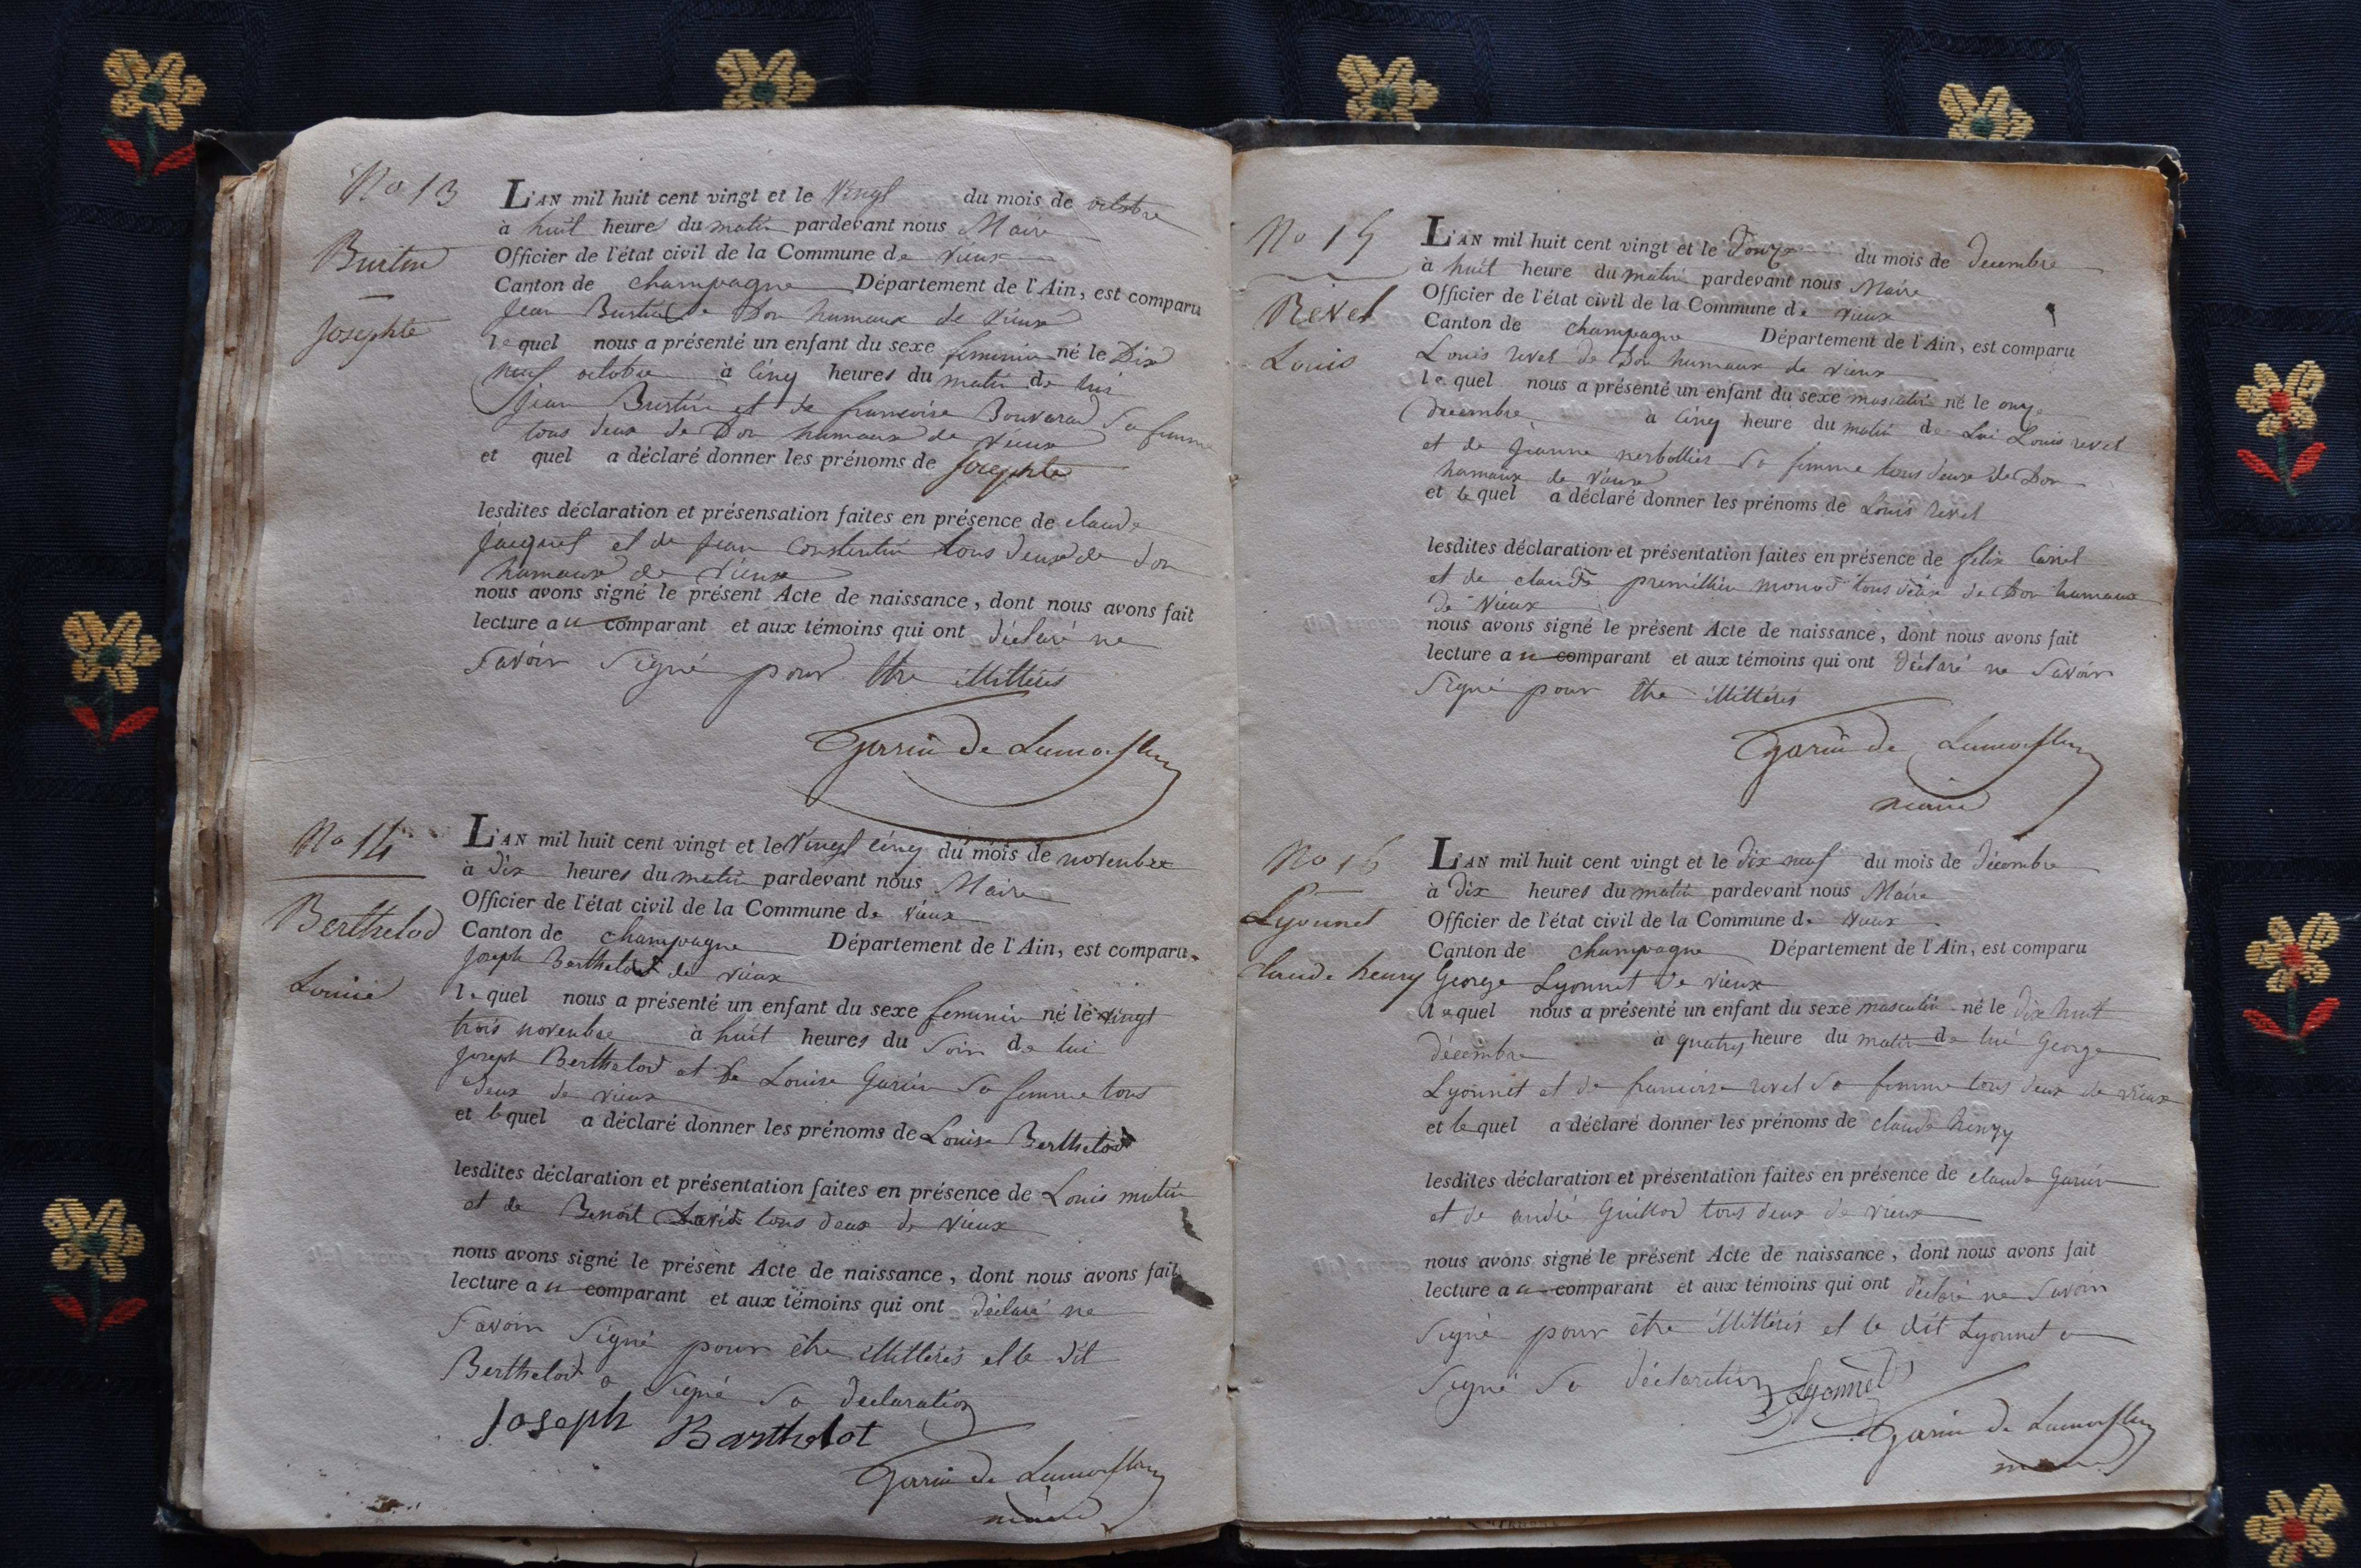 No 13
Burtin
Josephte
L'AN mil huit cent vingt et le Vingt du mois de octobre
à huit heures du matin pardevant nous Maire
Officier de l'état civil de la Commune de vieux
Canton de champagne Département de l'Ain, est comparu
Jean Burtin de Don hameaux de vieux
lequel nous a présenté un enfant du sexe feminin né le Dix
neuf octobre à cinq heures du matin de lui
Jean Burtin et de francoise Bouvard sa femme
tous deux de Don hameaux de vieux
et quel a déclaré donner les prénoms de Josephte
lesdites déclaration et présensation faites en présence de claude
Jacques et de jean Constentin tous deux de Don
hameaux de vieux
nous avons signé le présent Acte de naissance, dont nous avons fait
lecture au comparant et aux témoins qui ont déclaré ne
Savoir Signé pour être illittérés
Garin de
No 14
Berthelod
Louise
L'AN mil huit cent vingt et le Vingt cinq du mois de novembre
à Dix heures du matin pardevant nous Maire
Officier de l'état civil de la Commune de vieux
Canton de champagne Département de l'Ain, est comparu,
Joseph Berthelod de vieux
lequel nous a présenté un enfant du sexe feminin né le vingt
trois novembre à huit heures du Soir de lui
Joseph Berthelod et de Louise Garin sa femme tous
deux de vieux
et lequel a déclaré donner les prénoms de Louise Berthelod
lesdites déclaration et présentation faites en présence de Louis mutin
et de Benoit tous deux de vieux
nous avons signé le présent Acte de naissance, dont nous avons fait
lecture au comparant et aux témoins qui ont déclaré ne
Savoir Signé pour être illittérés et le dit
Berthelod a signé sa declaration
Joseph Barthelot
Garin de
maire
No 15
Revel
Louis
L'AN mil huit cent vingt et le Douze du mois de decembre
à huit heure du matin pardevant nous Maire
Officier de l'état civil de la Commune de vieux
Canton de champagne Département de l'Ain, est comparu
Louis revel de Don hameaux de vieux
lequel nous a présenté un enfant du sexe masculin né le onze
decembre à cinq heure du matin de Lui Louis revel
et de jeanne sa femme tous deux de Don
hameaux de vieux
et lequel a déclaré donner les prénoms de Louis revel
lesdites déclaration et présentation faites en présence de felix
et de claude premillieu monod tous deux de Don hameaux
de vieux
nous avons signé le présent Acte de naissance, dont nous avons fait
lecture au comparant et aux témoins qui ont déclaré ne Savoir
Signé pour être illittérés
Garin de
maire
No 16
Lyonnet
claude henry
L'AN mil huit cent vingt et le Dix neuf du mois de décembre
à Dix heures du matin pardevant nous Maire
Officier de l'état civil de la Commune de vieux
Canton de champagne Département de l'Ain, est comparu
George Lyonnet de vieux
lequel nous a présenté un enfant du sexe masculin né le dix huit
décembre à quatre heure du matin de lui George
Lyonnet et de francoise revel sa femme tous deux de vieux
et lequel a déclaré donner les prénoms de claude henry
lesdites déclaration et présentation faites en présence de claude Garin
et de andré Guillod tous deux de vieux
nous avons signé le présent Acte de naissance, dont nous avons fait
lecture au comparant et aux témoins qui ont déclaré ne Savoir
Signé pour être illittérés et le dit Lyonnet a
Signé sa déclaration Lyonnet
Garin de
maire